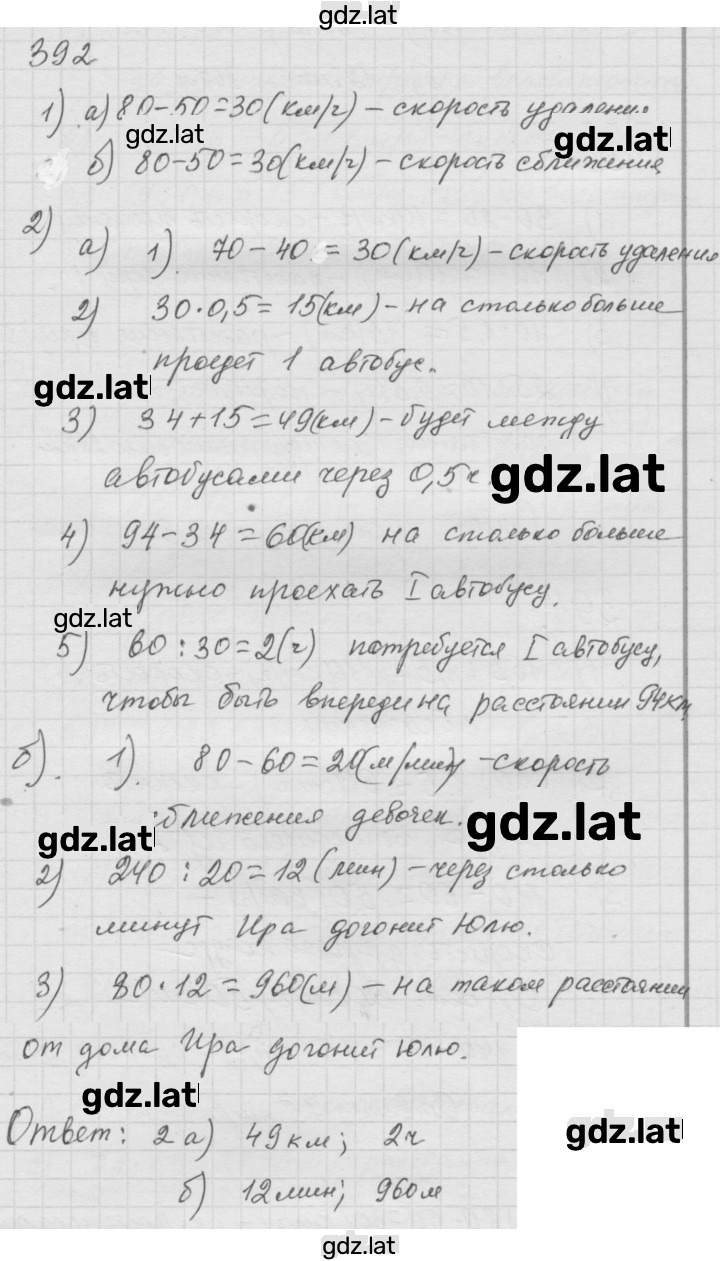 gdz.lat
392
1) а) 80-50=30(км/ч) - скорость удалени
gdz.lat
gdz.lat
б) 80-50=30(км/ч) - скорость сближения
2)
а) 1). 70-40 = 30(км/ч) - скорость удаления
2) 30·0,5=15(км) - на столько больше
проедет 1 автобус.
gdz.lat
3) 34+15=49(км) - будет между
автобусами через 0,5ч
gdz.lat
4) 94-34=60(км) на столько больше
нужно проехать I автобусу.
gdz.lat
5) 60:30=2(ч) потребуется I автобусу,
чтобы быть впереди на расстоянии 94км
б). 1). 80-60=20(м/мин) - скорость
сближения девочек.
gdz.lat
gdz.lat
2) 240:20=12(мин) - через столько
минут Ира догонит Юлю.
3) 80·12=960(м) - на таком расстоянии
от дома Ира догонит Юлю.
gdz.lat
Ответ: 2 а) 49км; 2ч
gdz.lat
б) 12мин; 960м
gdz.lat